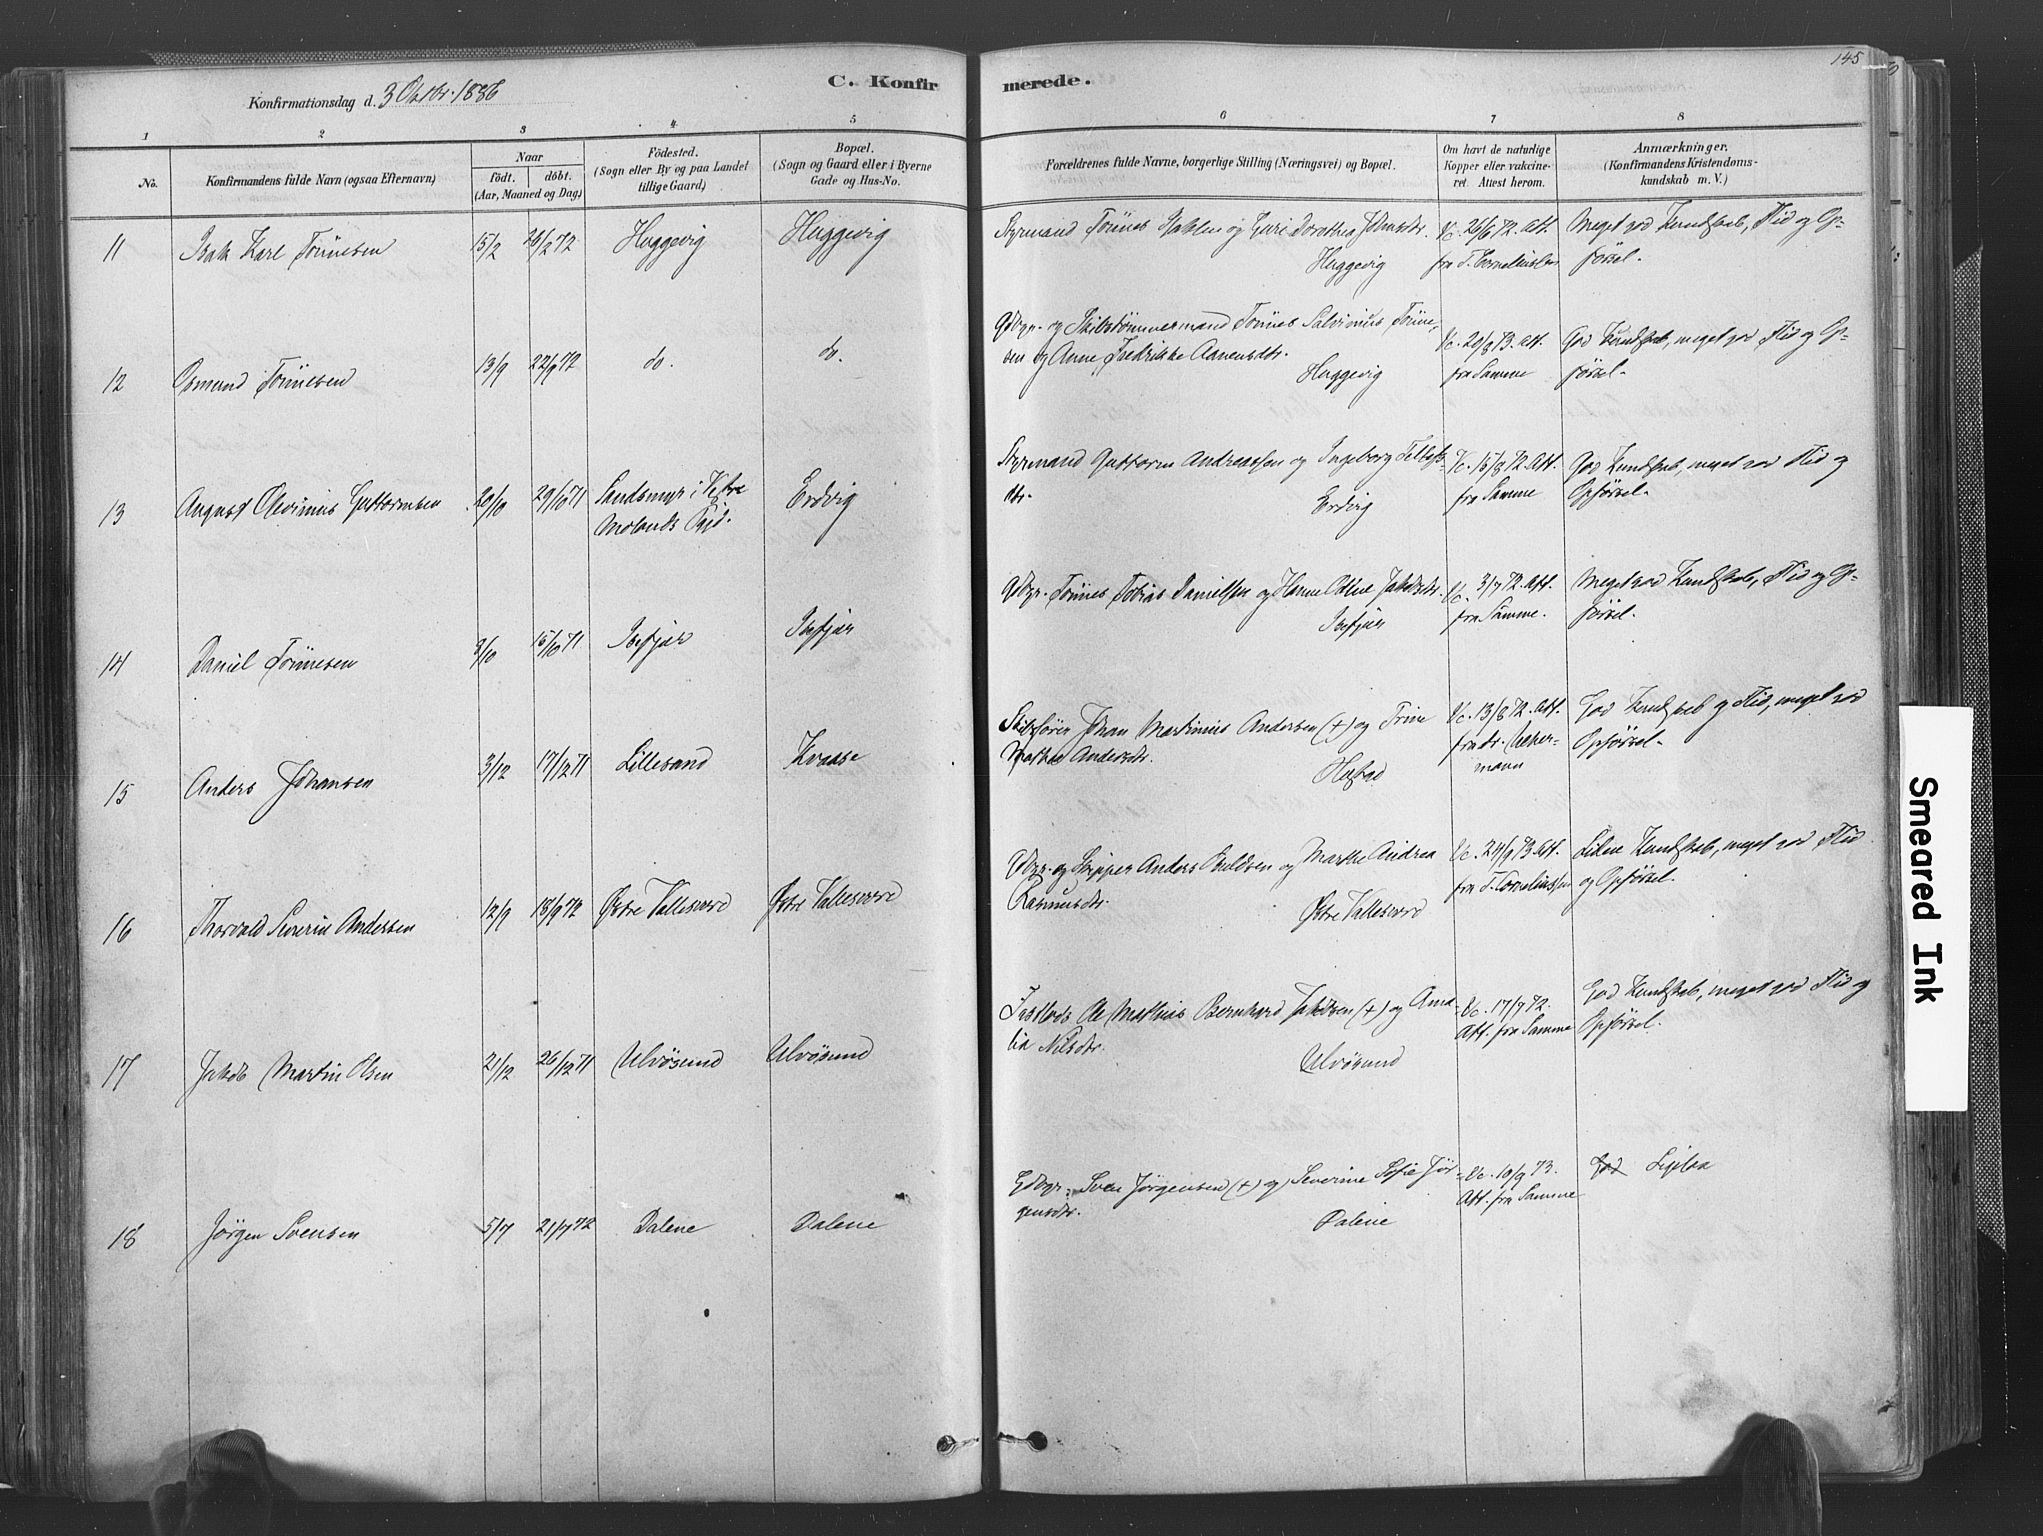 145
Konfirmationsdag d. 3 Oktbr. 1886
C. Konfirmerede.
1 2 3 4 5 6 7 8
No.
Konfirmandens fulde Navn (ogsaa Efternavn)
Naar
födt. döbt.
(Aar, Maaned og Dag)
Födested.
(Sogn eller By og paa Landet
tillige Gaard)
Bopæl.
(Sogn og Gaard eller i Byerne
Gade og Hus-No.
Forældrenes fulde Navne, borgerlige Stilling (Næringsvei) og Bopæl.
Om havt de naturlige
Kopper eller vakcine-
ret. Attest herom.
Anmærkninger.
(Konfirmandens Kristendoms-
kundskab m. V.)
11 Isak Karl Tönnesen 15/2 26/2 72 Huggevig Huggevig
Styrmand Tönnes og Guri Dorothea
Huggevig
Vc. 26/6 72. Att.
fra T. Corneliussen
Meget god Kundskab, Flid og Op-
försel.
12 Osmund Tönnesen 13/9 22/9 72 do. do.
Gdbgr. og Skibstömmermand Tönnes Salvinius Tönne-
sen og Anne Fredrikke Aanensdtr.
Huggevig
Vc. 20/8 73. Att.
fra Samme
God Kundskab, meget god Flid og Op-
försel.
13 August Olevinius Guttormsen 20/10 29/10 71 Sandsmyr i Vestre
Molands Pgjd. Erdvig
Styrmand Guttorm Andreassen og Ingeborg Tellefs-
dtr.
Erdvig
Vc. 15/8 72. Att.
fra Samme
God Kundskab, meget god Flid og
Opförsel.
14 Daniel Tönnesen 3/10 15/10 71 Isefjær Isefjær
Gdbgr. Tönnes Tobias Danielsen og Hanne Oline Jakobsdtr.
Isefjær
Vc. 3/7 72. Att.
fra Samme.
Meget god Kundskab, Flid og Op-
försel.
15 Anders Johansen 3/12 17/12 71 Lillesand Kvaase
Skibsförer Johan Martinius Andersen (+) og Trine
Marthe Andersdtr.
Vc. 13/8 72. Att.
fra dr. Ueker-
mann
God Kundskab og Flid, meget god
Opförsel.
16 Thorvald Severin Andersen 12/9 18/9 72 Østre Vallesværd Østre Vallesværd
Gdbgr. og Skipper Anders og Marthe Andrea
Rasmusdtr.
Østre Vallesværd
Vc. 24/9 73. Att.
fra T. Corneliussen
Liden Kundskab, meget god Flid
og Opförsel.
17 Jakob Martin Olsen 21/12 26/12 71 Ulvösund Ulvösund
Fastlods Ole Mathias Bernhard Jakobsen (+) og Ama-
lia Nilsdtr.
Ulvösund
Vc. 17/9 72.
Att. fra Samme
God Kundskab, meget god Flid og
Opförsel.
18 Jörgen Svensen 5/7 21/7 72 Dalene Dalene
Gdbgr. Sven Jörgensen (+) og Severine Sofie Jör-
gensdtr.
Dalene
Vc. 10/9 73.
Att. fra Samme
God Ligelaa
Smeared Ink